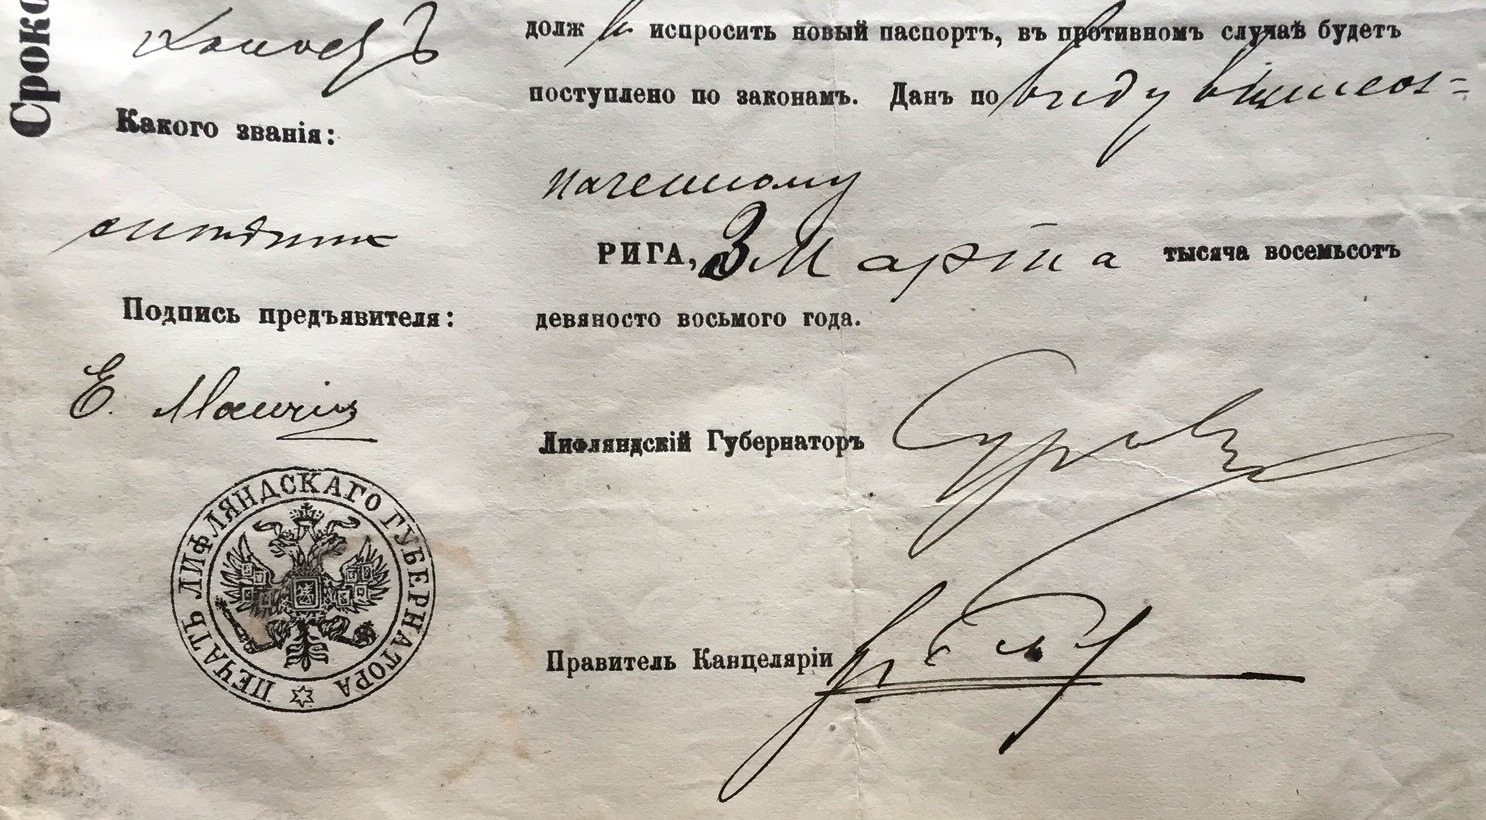 Сроко
долж испросить новый паспортъ, въ противномъ случаѣ будетъ
поступлено по законамъ. Данъ по виду вышеоз=
Какого званія:
наченному
РИГА, 3 Марта тысяча восемьсотъ
Подпись предъявителя:
девяносто восьмого года.
Е.
Лифляндскій Губернаторъ
ПЕЧАТЬ ЛИФЛЯНДСКАГО ГУБЕРНАТОРА
Правитель Канцеляріи